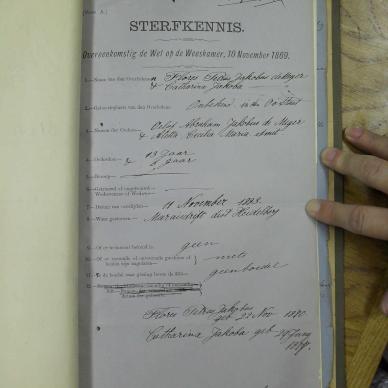 STERFKENNIS.
Overeenkomstig de Wet op de Weeskamer, 10 November 1869.
1.—Naam van den Overledene a Flores Petrus Jakobus de Meyer
& Catharina Jakoba
2.—Geboorteplaats van den Overledene Onbekend in de O V Staat
3.—Namen der Ouders Abraham Jakobus de Meyer
& Aletta Cecilia Maria Smit
4.—Ouderdom 13 Jaar
& Jaar
5.—Beroep
6.—Getrouwd of ongetrouwd
Weduwenaar of Weduwe
7.—Datum van overlijden 11 November 1893
8.—Waar gestorven Maraisdrift dist Heidelberg
9.—Of er testament bestaat is geen
10.—Of er roerende of onroerende goederen of
baten zijn nagelaten niets
11.— geen boedel
Flores Petrus Jakobus
geb 22 Nov 1880
Catharina Jakoba geb